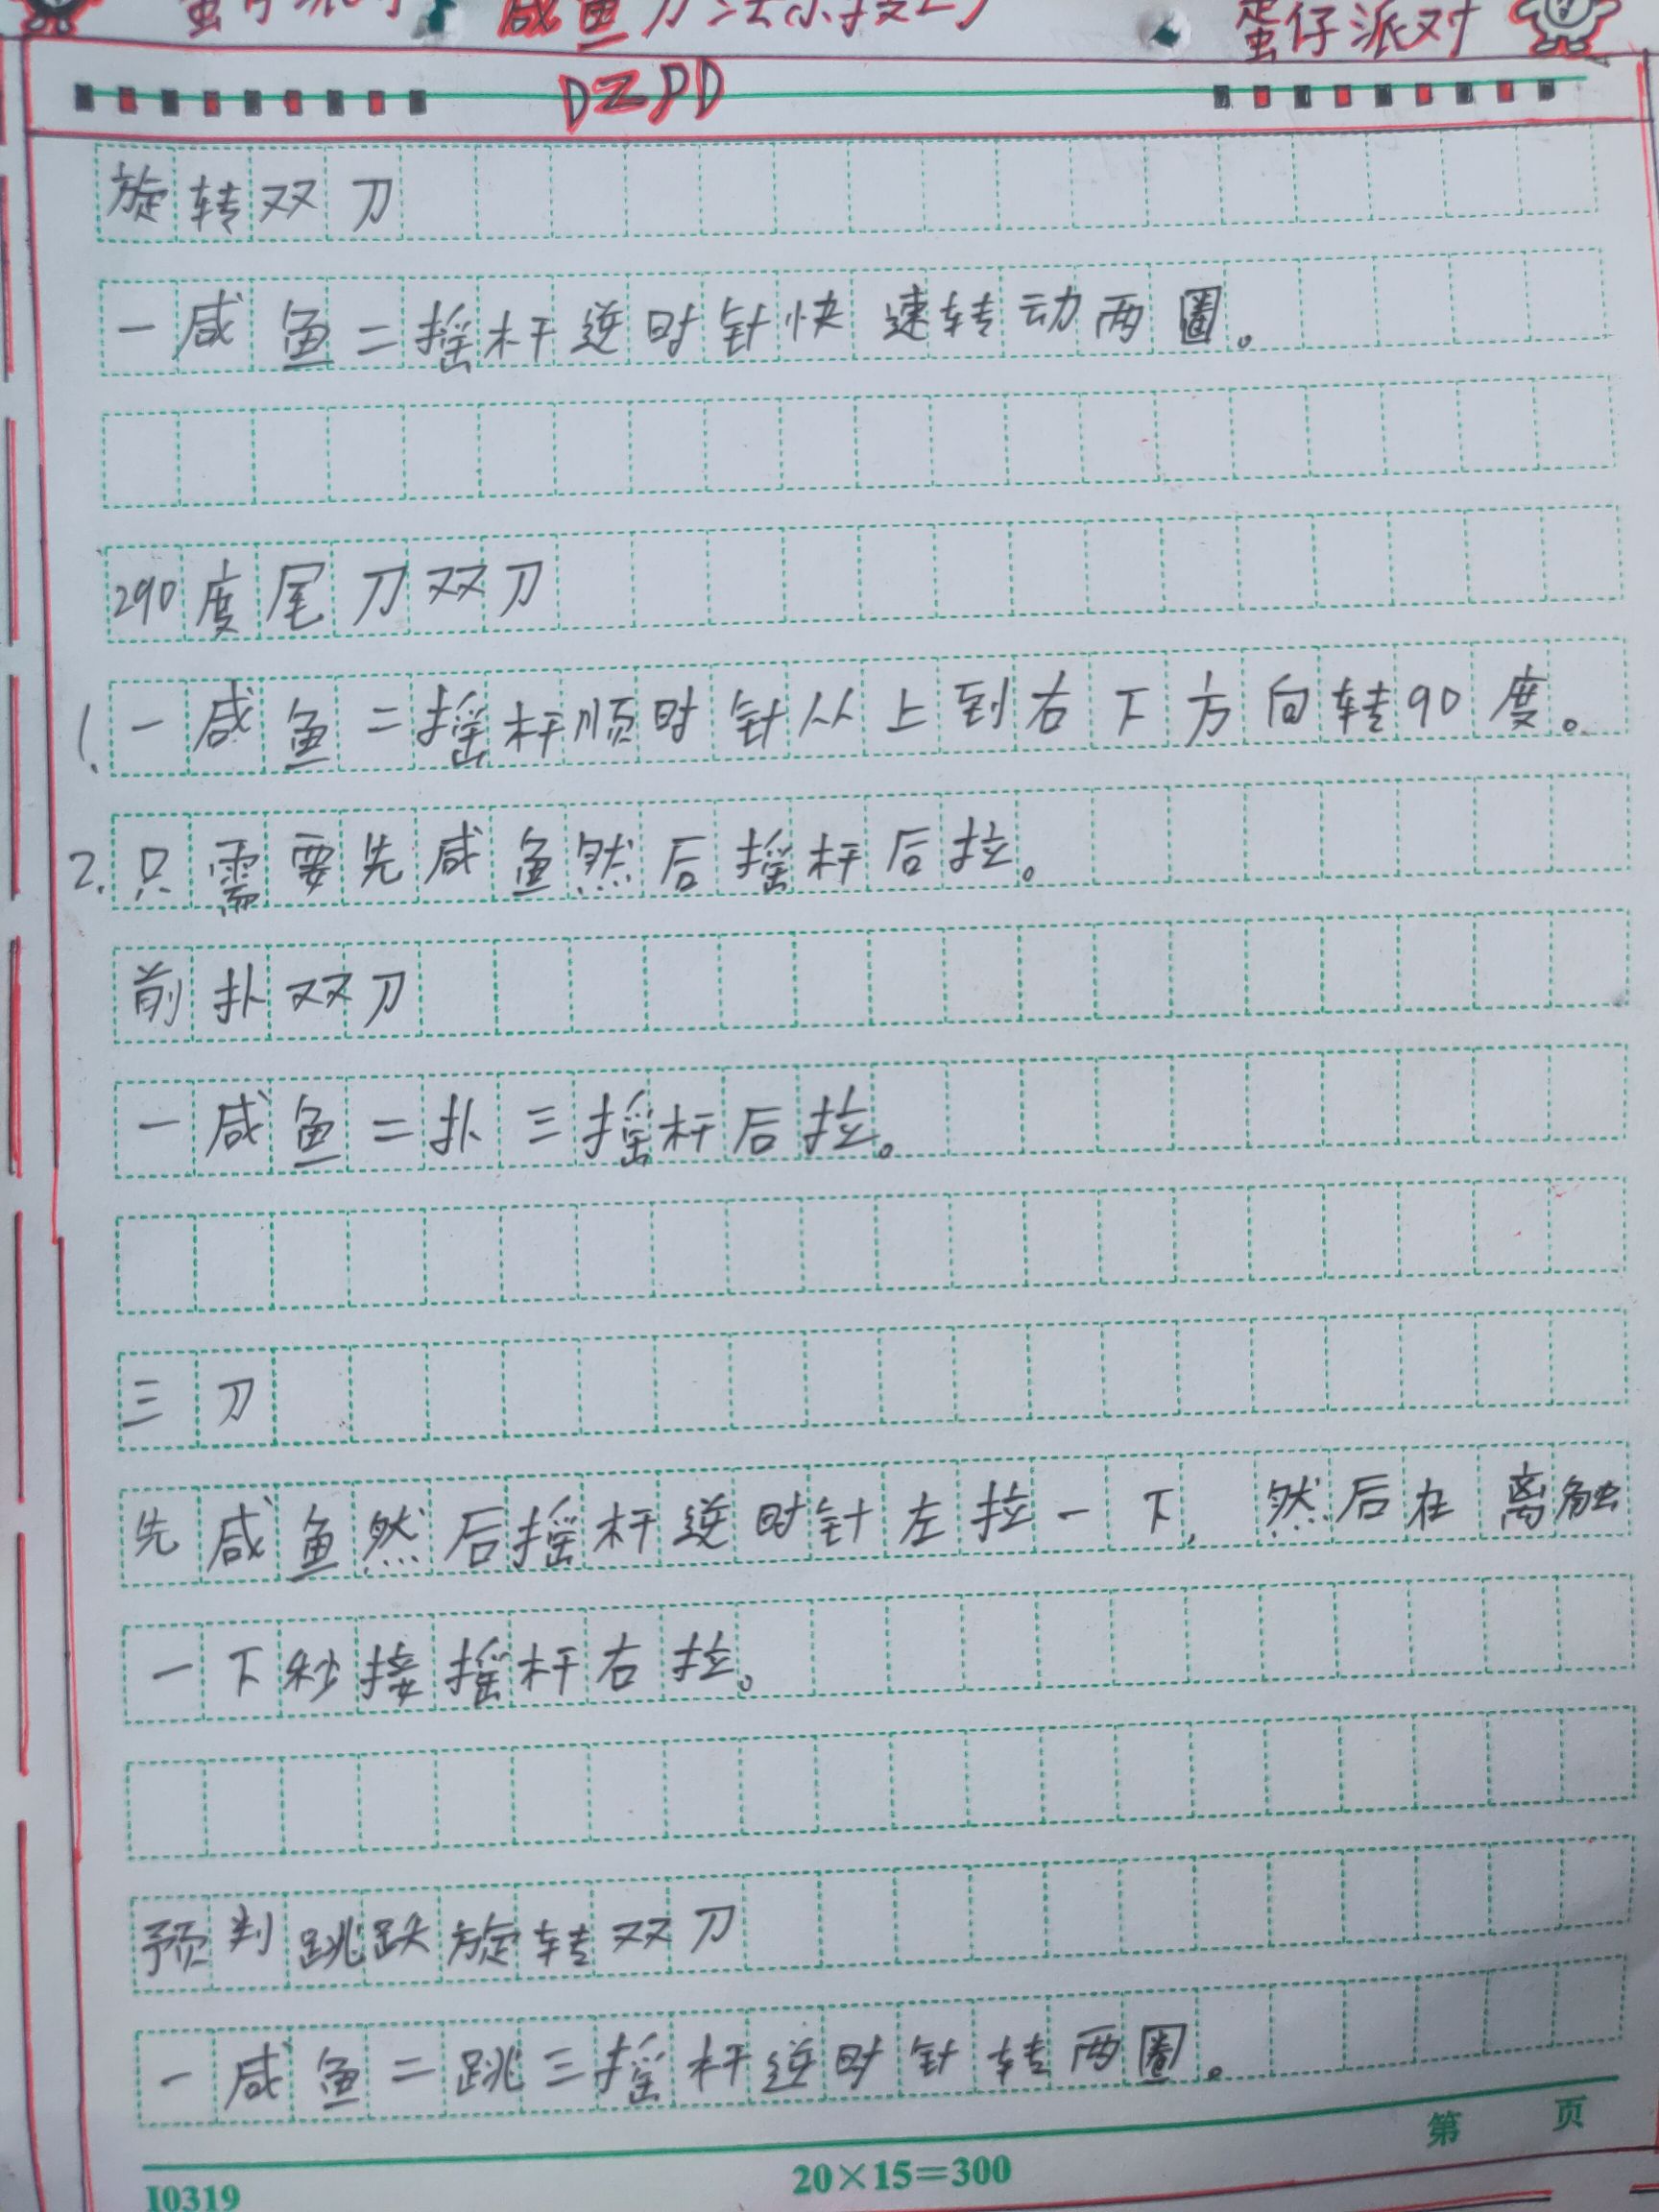 蛋仔派对 咸鱼刀法 蛋仔派对
DZPD
旋转双刀
一咸鱼二摇杆逆时针快速转动两圈。
290度尾刀双刀
1.一咸鱼二摇杆顺时针从上到右下方向转90度。
2.只需要先咸鱼然后摇杆后拉。
前扑双刀
一咸鱼二扑三摇杆后拉。
三刀
先咸鱼然后摇杆逆时针左拉一下,然后在离触
一下秒接摇杆右拉。
预判跳跃旋转双刀
一咸鱼二跳三摇杆逆时针转两圈。
第 页
I0319
20×15=300